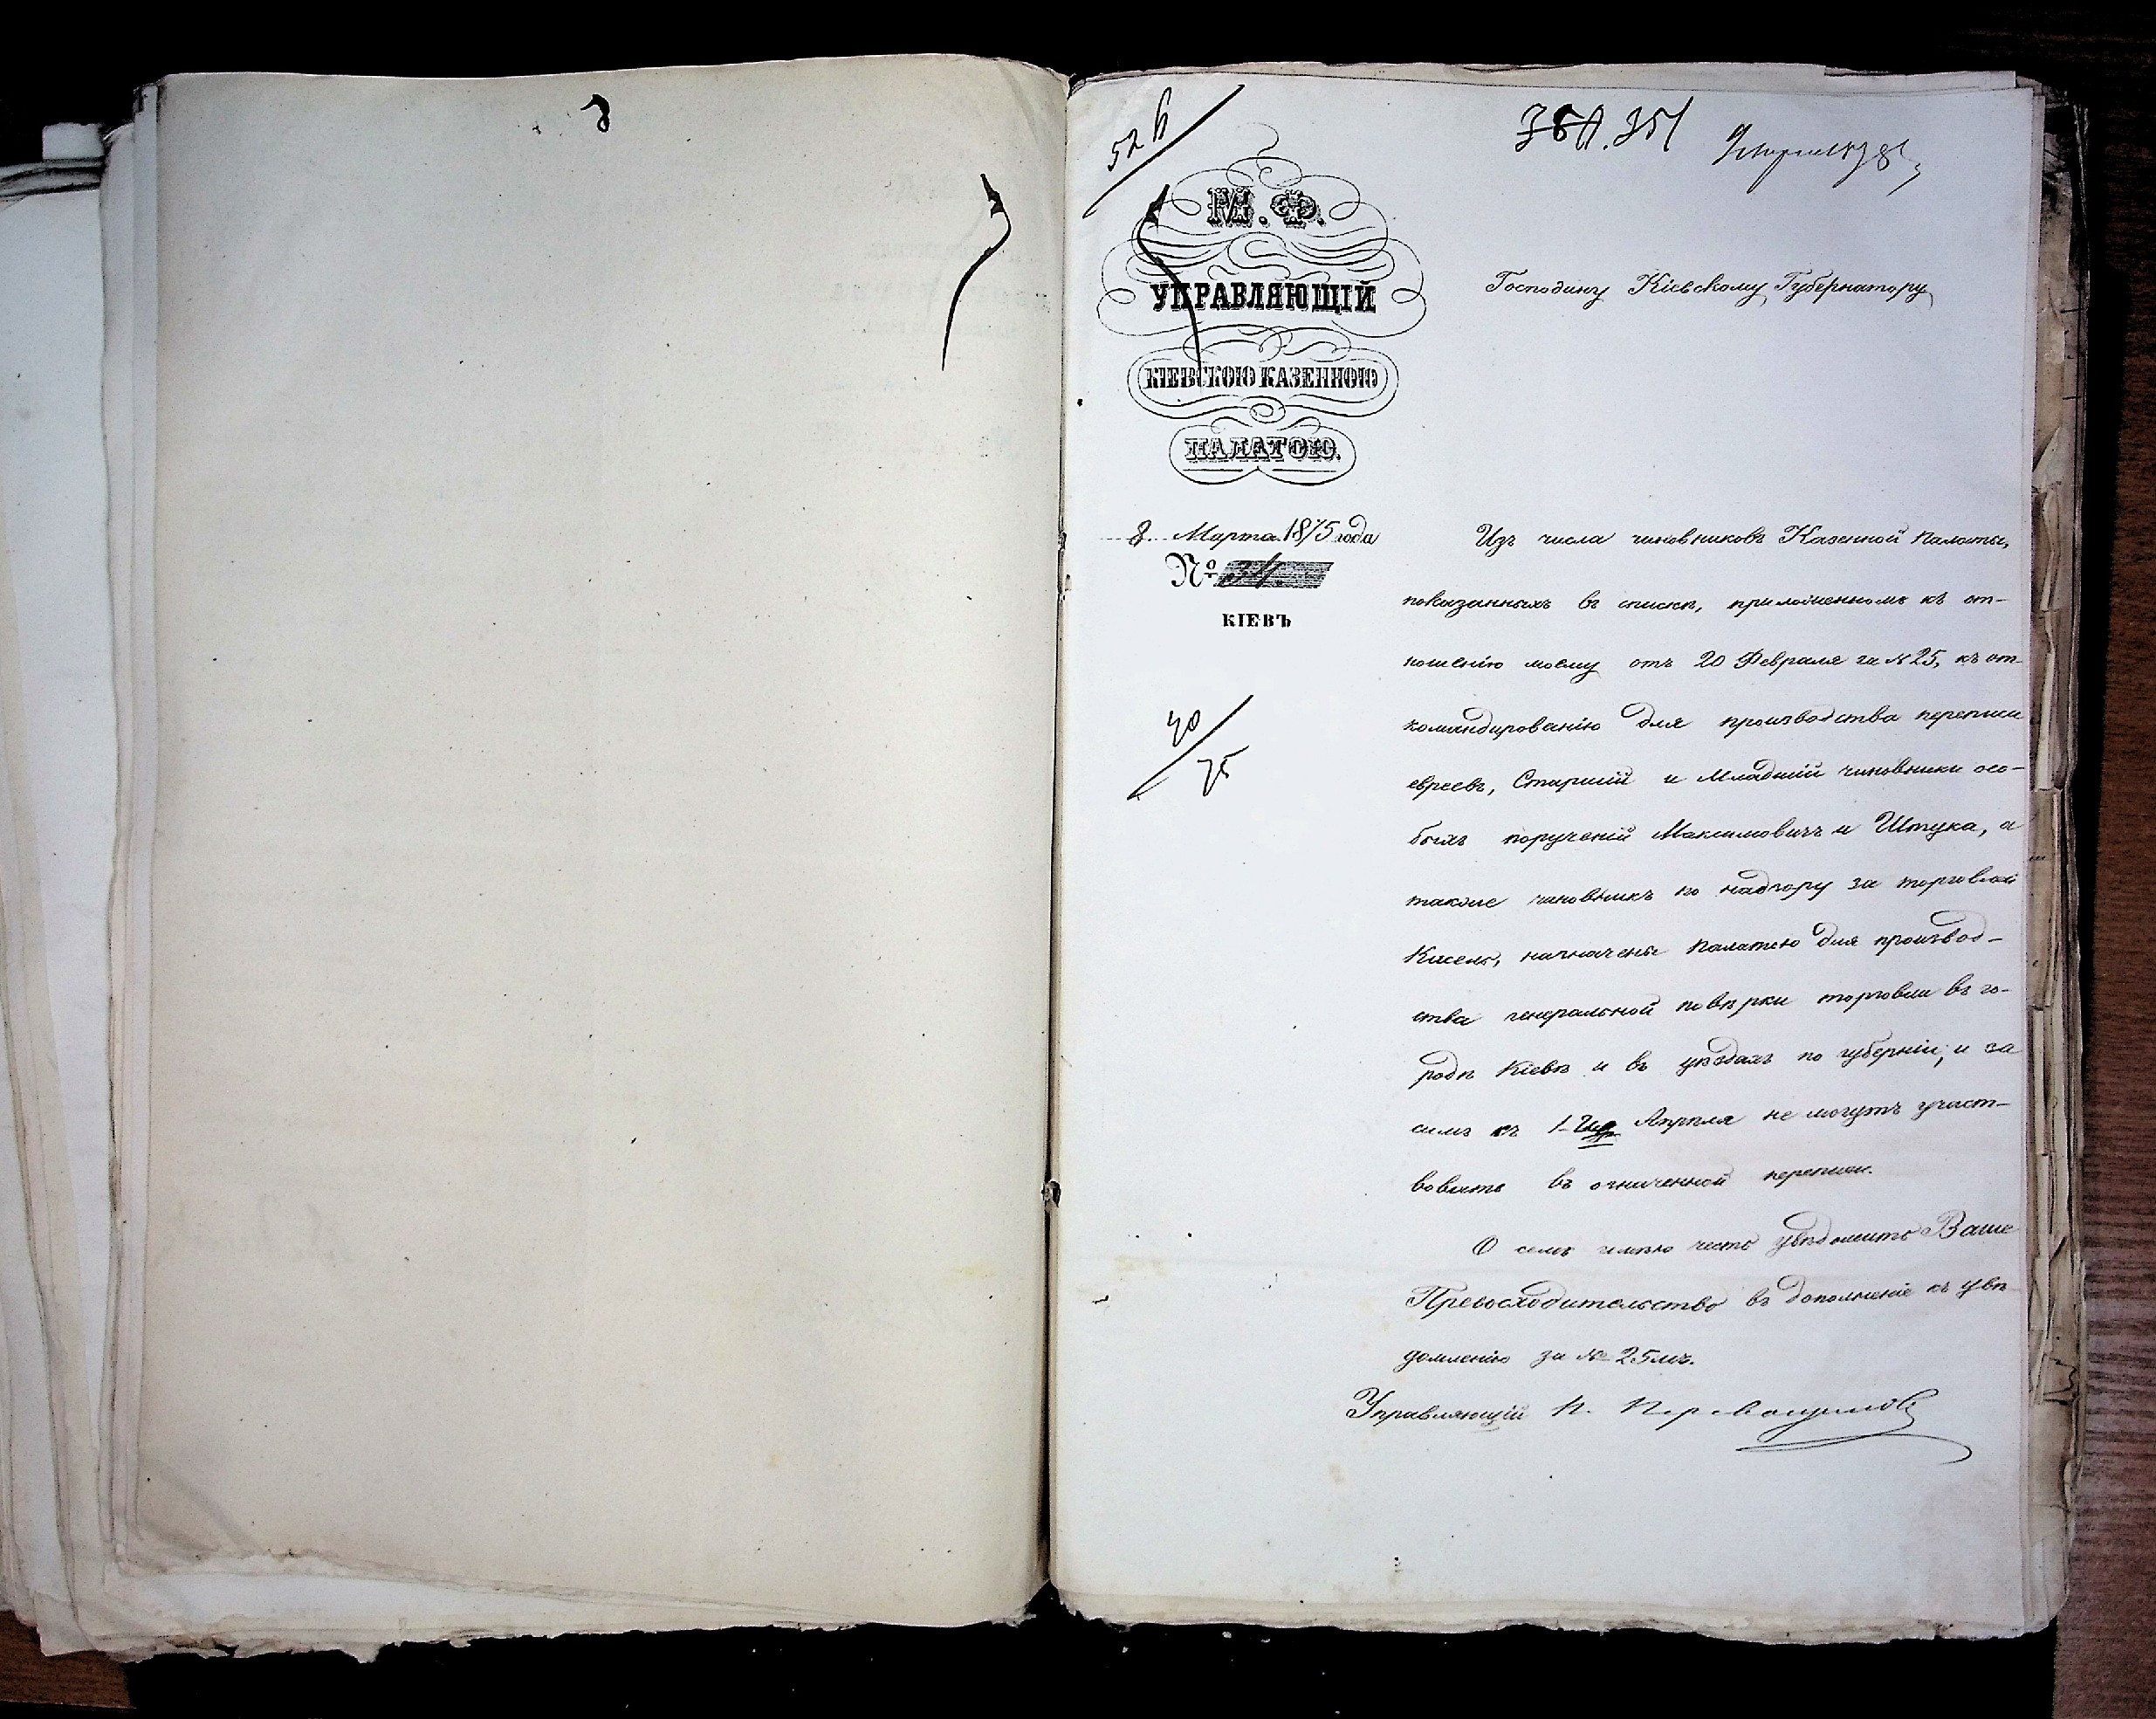 526
351
М. Ф.
УПРАВЛЯЮЩІЙ
КІЕВСКОЮ КАЗЕННОЮ
ПАЛАТОЮ.
8. Марта 1875 года
№ 34.
КІЕВЪ
40/75
Господину Кіевскому Губернатору
Изъ числа чиновниковъ Казенной Палаты,
показанныхъ въ списке, приложенномъ къ от-
ношенію моему отъ 20 Февраля за № 25, къ от-
командированію для производства переписи
евреевъ, Старшій и Младшій чиновники осо-
быхъ порученій Максимовичъ и Штука, а
также чиновникъ по надзору за торговлей
Кисель, назначены Палатою для производ-
ства генеральной повѣрки торговли въ го-
родѣ Кіевѣ и въ уѣздахъ по губерніи, и за
симъ къ 1- Апрѣля не могутъ участ-
вовать въ означенной переписи.
О семъ имѣю честь увѣдомить Ваше
Превосходительство въ дополненіе къ увѣ
домленію за № 25мъ.
Управляющій